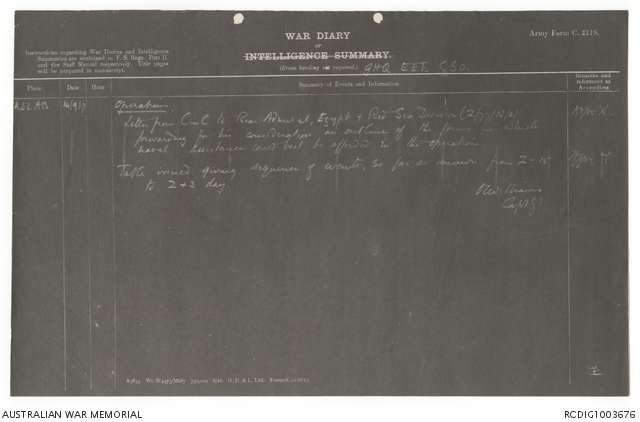 WAR DIARY
or
INTELLIGENCE SUMMARY.
(Erase heading not required.)
GHQ EEF. GSO.
Army Form C. 2118.
Instructions regarding War Diaries and Intelligence
Summaries are contained in F. S. Regs. Part II.
and the Staff Manual respectively. Title pages
will be prepared in manuscript.
Place
Date
Hour
Summary of Events and Information
Remarks and
references to
Appendices
KELAB
Operations.
Letter from C-in-C to Rear Admiral, Egypt & Red Sea Division
forwarding for his consideration an outline of the forms in which
naval assistance could best be afforded in the operation
Table issued giving sequence of events, so far as known from Z-15
to Z+3 day
Williams
Capt
Forms/C.2118/13
AUSTRALIAN WAR MEMORIAL
RCDIG1003676